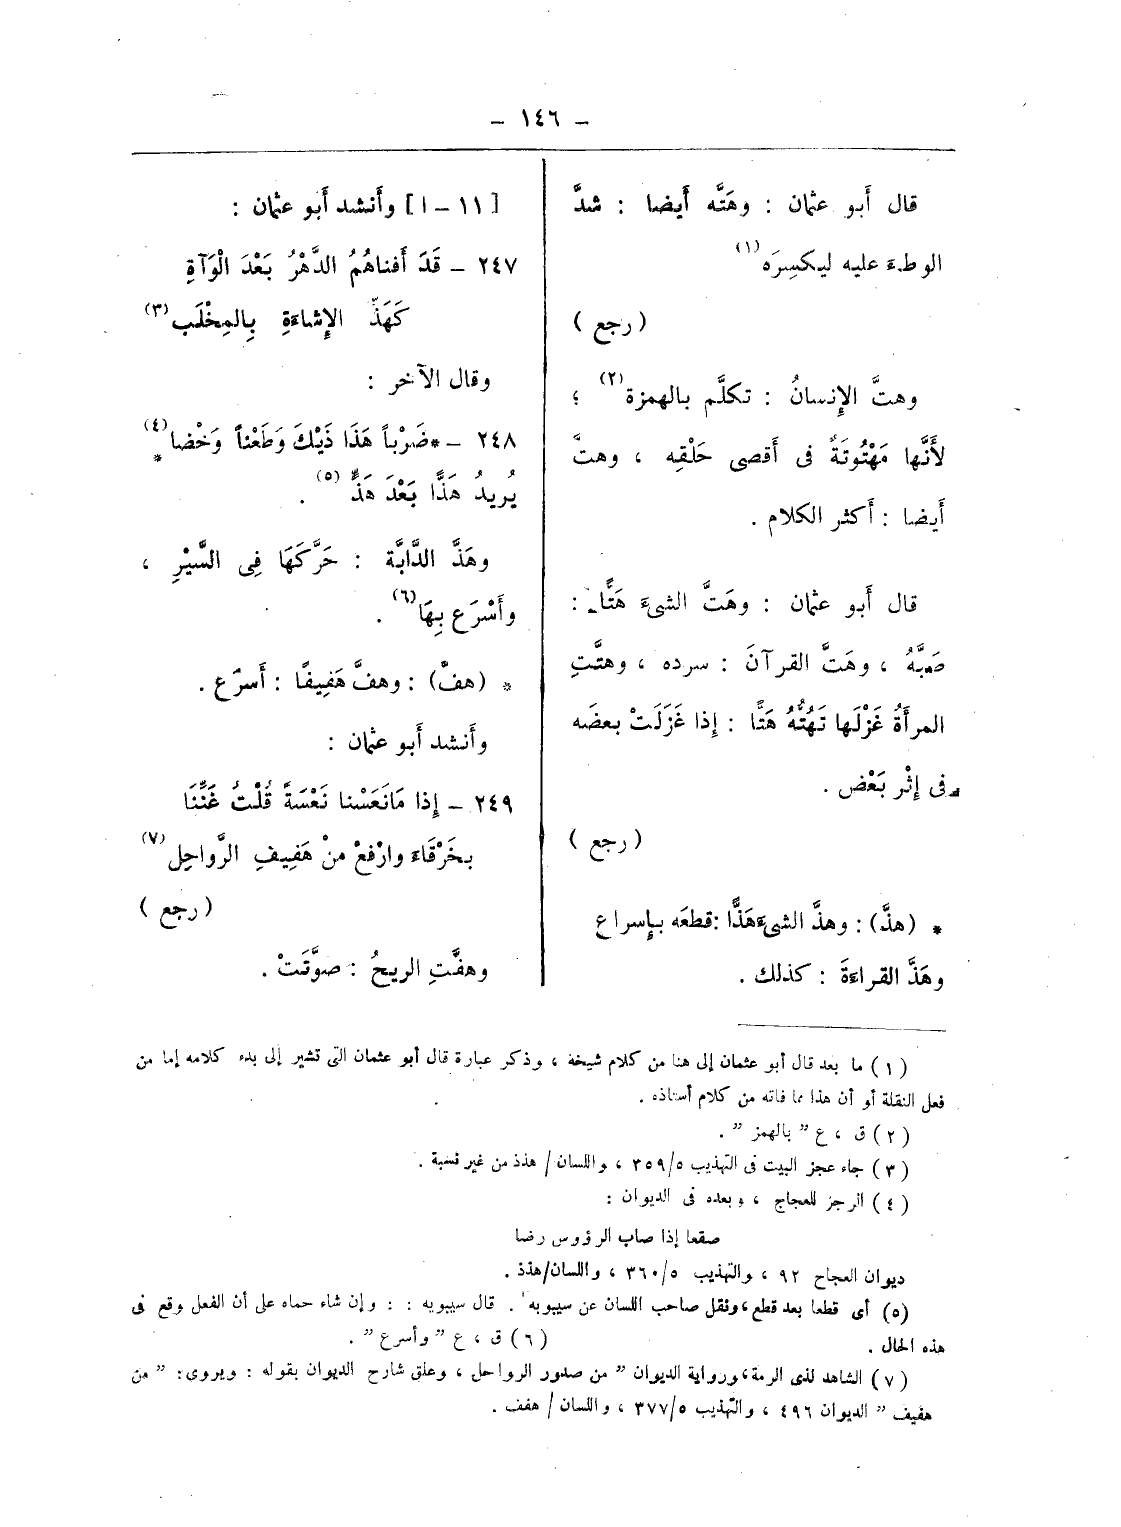 – ١٤٦ –
قال أَبو عثمان : وهَتَّه أَيضا : شدَّ
الوطءَ عليه ليكسِرَه(١)
( رجع )
وهتَّ الإِنسانُ : تكلَّم بالهمزة(٢) ؛
لأَنَّها مَهْتُوتَةٌ فى أَقصى حَلْقِه ، وهتَّ
أَيضا : أَكثر الكلام .
قال أَبو عثمان : وهَتَّ الشىءَ هَتًّا :
صَبَّهُ ، وهَتَّ القرآنَ : سرده ، وهتَّتِ
المرأَةُ غَزْلَها تَهُتُّهُ هَتًّا : إذا غَزَلَتْ بعضَه
فى إثْر بَعْض .
( رجع )
* (هذَّ) : وهذَّ الشىءَ هَذًّا : قطعَه بإسراع
وهَذَّ القراءةَ : كذلك .
[ ١١ – ا ] وأَنشد أَبو عثمان :
٢٤٧ – قَدَ أَفناهُمُ الدَّهْرُ بَعْدَ الْوَآةِ
كَهَذِّ الإِشاءَةِ بِالمِخْلَب(٣)
وقال الآخر :
٢٤٨ – *ضَرْباً هَذَا ذَيْكَ وَطَعْناً وَخْضا(٤)*
يُريدُ هَذًّا بَعْدَ هَذٍّ(٥) .
وهَذَّ الدَّابَّة : حَرَّكَهَا فِى السَّيْرِ ،
وأَسْرَع بِهَا(٦) .
* (هفَّ) : وهفَّ هَفِيفًا : أَسرَع .
وأَنشد أَبو عثمان :
٢٤٩ – إذا مَانَعَسْنا نَعْسَةً قُلْتُ غَنِّنَا
بخَرْقَاءَ وارْفعْ منْ هَفِيفِ الرَّواحِل(٧)
( رجع )
وهفَّتِ الريحُ : صوَّتَتْ .
( ١ ) ما بعد قال أبو عثمان إلى هنا من كلام شيخة ، وذكر عبارة قال أبو عثمان التى تشير إلى بدء كلامه إما من
فعل النقلة أو أن هذا مما فاته من كلام أستاذه .
( ٢ ) ق ، ع ” بالهمز ” .
( ٣ ) جاء عجز البيت فى التهذيب ٣٥٩/٥ ، واللسان / هذذ من غير نسبة .
( ٤ ) الرجز للعجاج ، وبعده فى الديوان :
صقعا إذا صاب الرؤوس رضا
ديوان العجاج ٩٢ ، والتهذيب ٣٦٠/٥ ، واللسان/هذذ .
(٥) أى قطعا بعد قطع ، ونقل صاحب اللسان عن سيبويه . قال سيبويه : : وإن شاء حماه على أن الفعل وقع فى
هذه الحال . ( ٦ ) ق ، ع ” وأسرع ” .
( ٧ ) الشاهد لذى الرمة ، ورواية الديوان ” من صدور الرواحل ، وعلق شارح الديوان بقوله : ويروى : ” من
هفيف ” الديوان ٤٩٦ ، والتهذيب ٣٧٧/٥ ، واللسان / هفف .